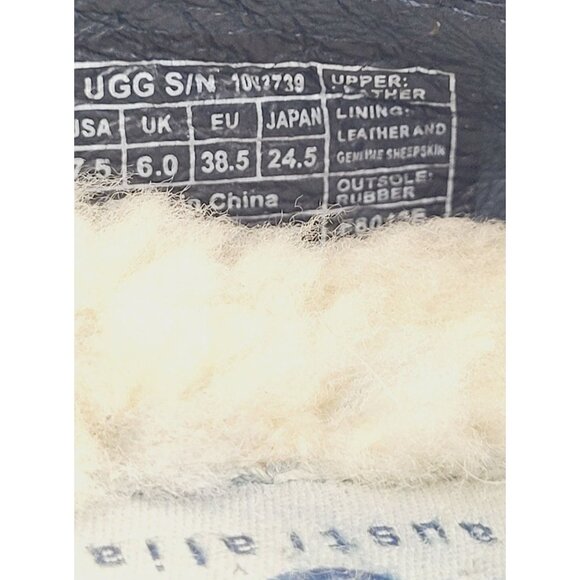 UGG S/N
USA UK EU JAPAN
7.5 6.0 38.5 24.5
China
UPPER:
LEATHER
LINING:
LEATHER AND
GENUINE SHEEPSKIN
OUTSOLE:
RUBBER
australia